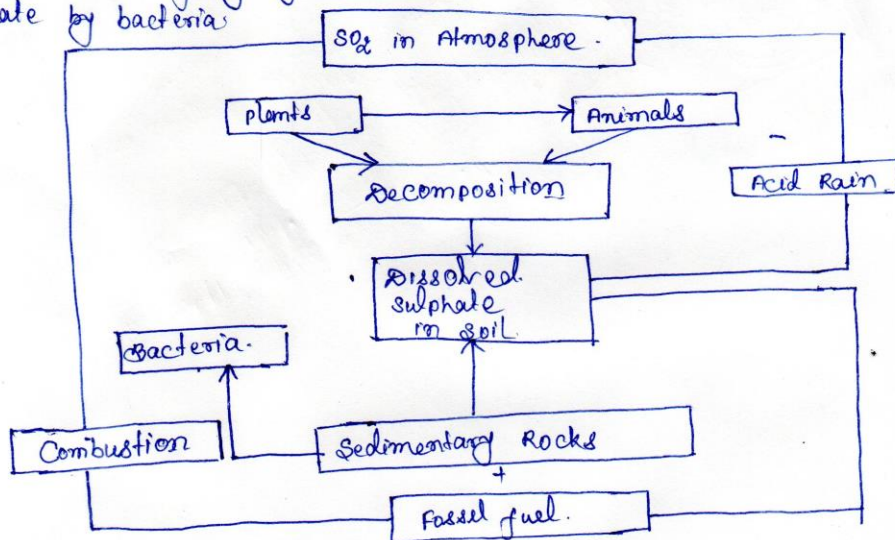 ate by bacteria
SO2 in Atmosphere.
Plants
Animals
Decomposition
Acid Rain.
Dissolved
sulphate
in soil
Bacteria.
Combustion
Sedimentary Rocks
+
Fossel fuel.